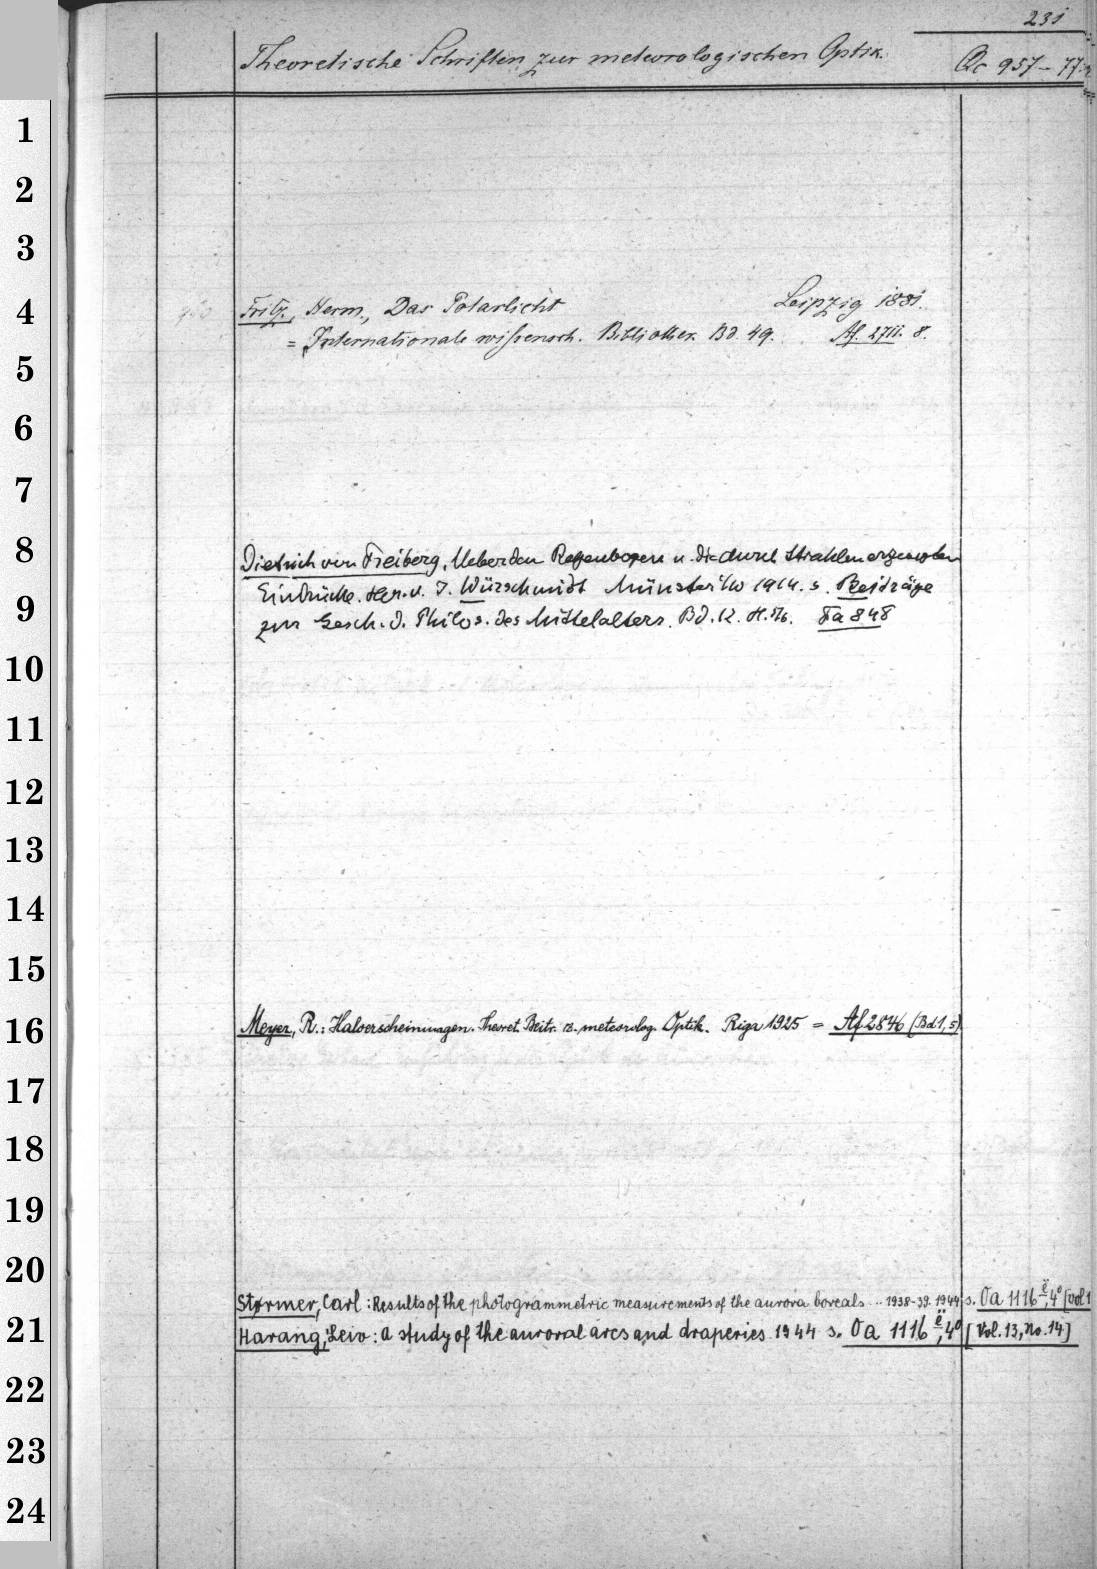 231
Theoretische Schriften zur meteorologischen Optik. Qc 957-77
1
2
3
4
Fritz, Herm., Das Polarlicht Leipzig 1881.
= Internationale wissensch. Bibliothek. Bd. 49. Af. 2711. 8.
5
6
7
8
Dietrich von Freiberg, Ueber den Regenbogen u. die durch Strahlen erzeugten
Eindrücke. Her. v. J. Würschmidt Münster i/W 1914. s. Beiträge
9
zur Gesch. d. Philos. des Mittelalters. Bd. 12. H. 5/6. Fa 848
10
11
12
13
14
15
16
Meyer, R.: Haloerscheinungen. Theoret. Beitr. z. meteorolog. Optik. Riga 1925 = Af 2846 (Bd 1, 5)
17
18
19
20
Størmer, Carl: Results of the photogrammetric measurements of the aurora boreals ... 1938-39. 1944 s. Oa 1116 ë, 4° [Vol 1
21
Harang, Leiv: a study of the auroral arcs and draperies 1944 s. Oa 1116 ë, 4° [Vol. 13, No. 14]
22
23
24